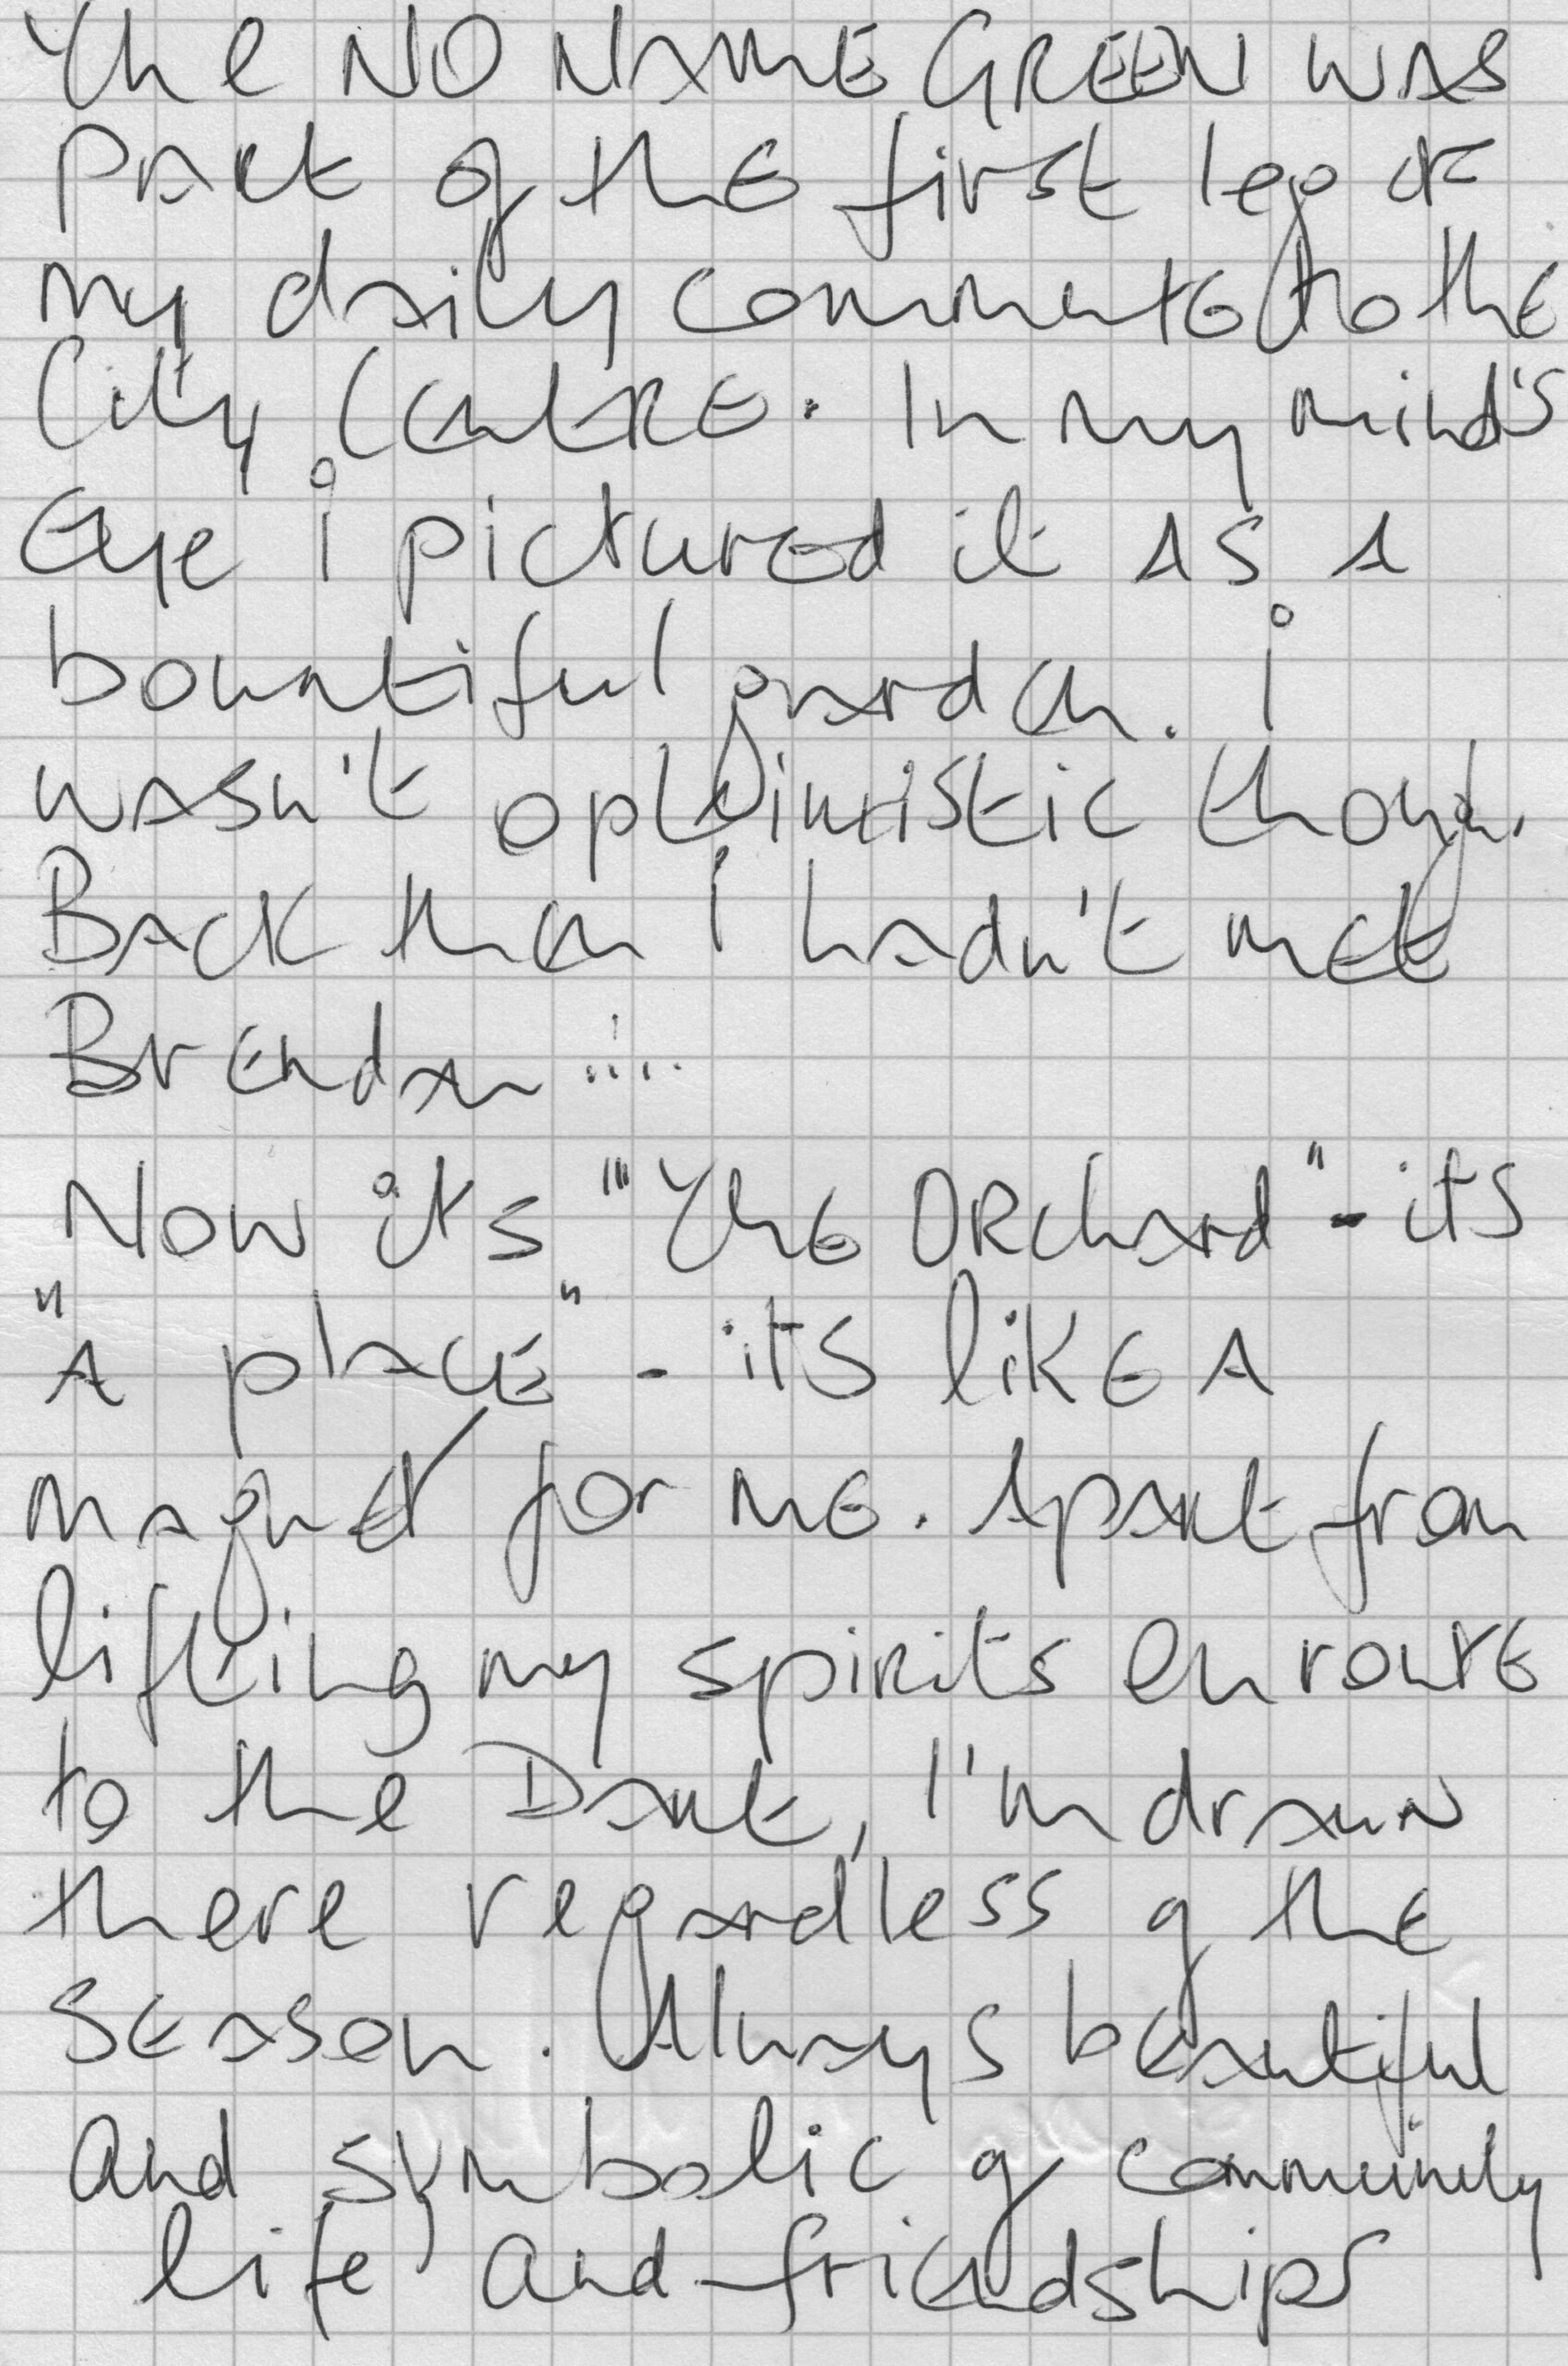 The NO NAME GREEN WAS
PART of the first leg of
my daily commute to the
City Centre. In my mind's
Eye i pictured it AS A
bountiful garden. i
wasn't optimistic though.
BACK then I hadn't met
Brendan .....
Now its "The ORchard" - its
"A place" - its like A
magnet for me. Apart from
lifting my spirits en route
to the Dart, I'm drawn
there regardless of the
season. Always beautiful
and symbolic of community
life and friendships